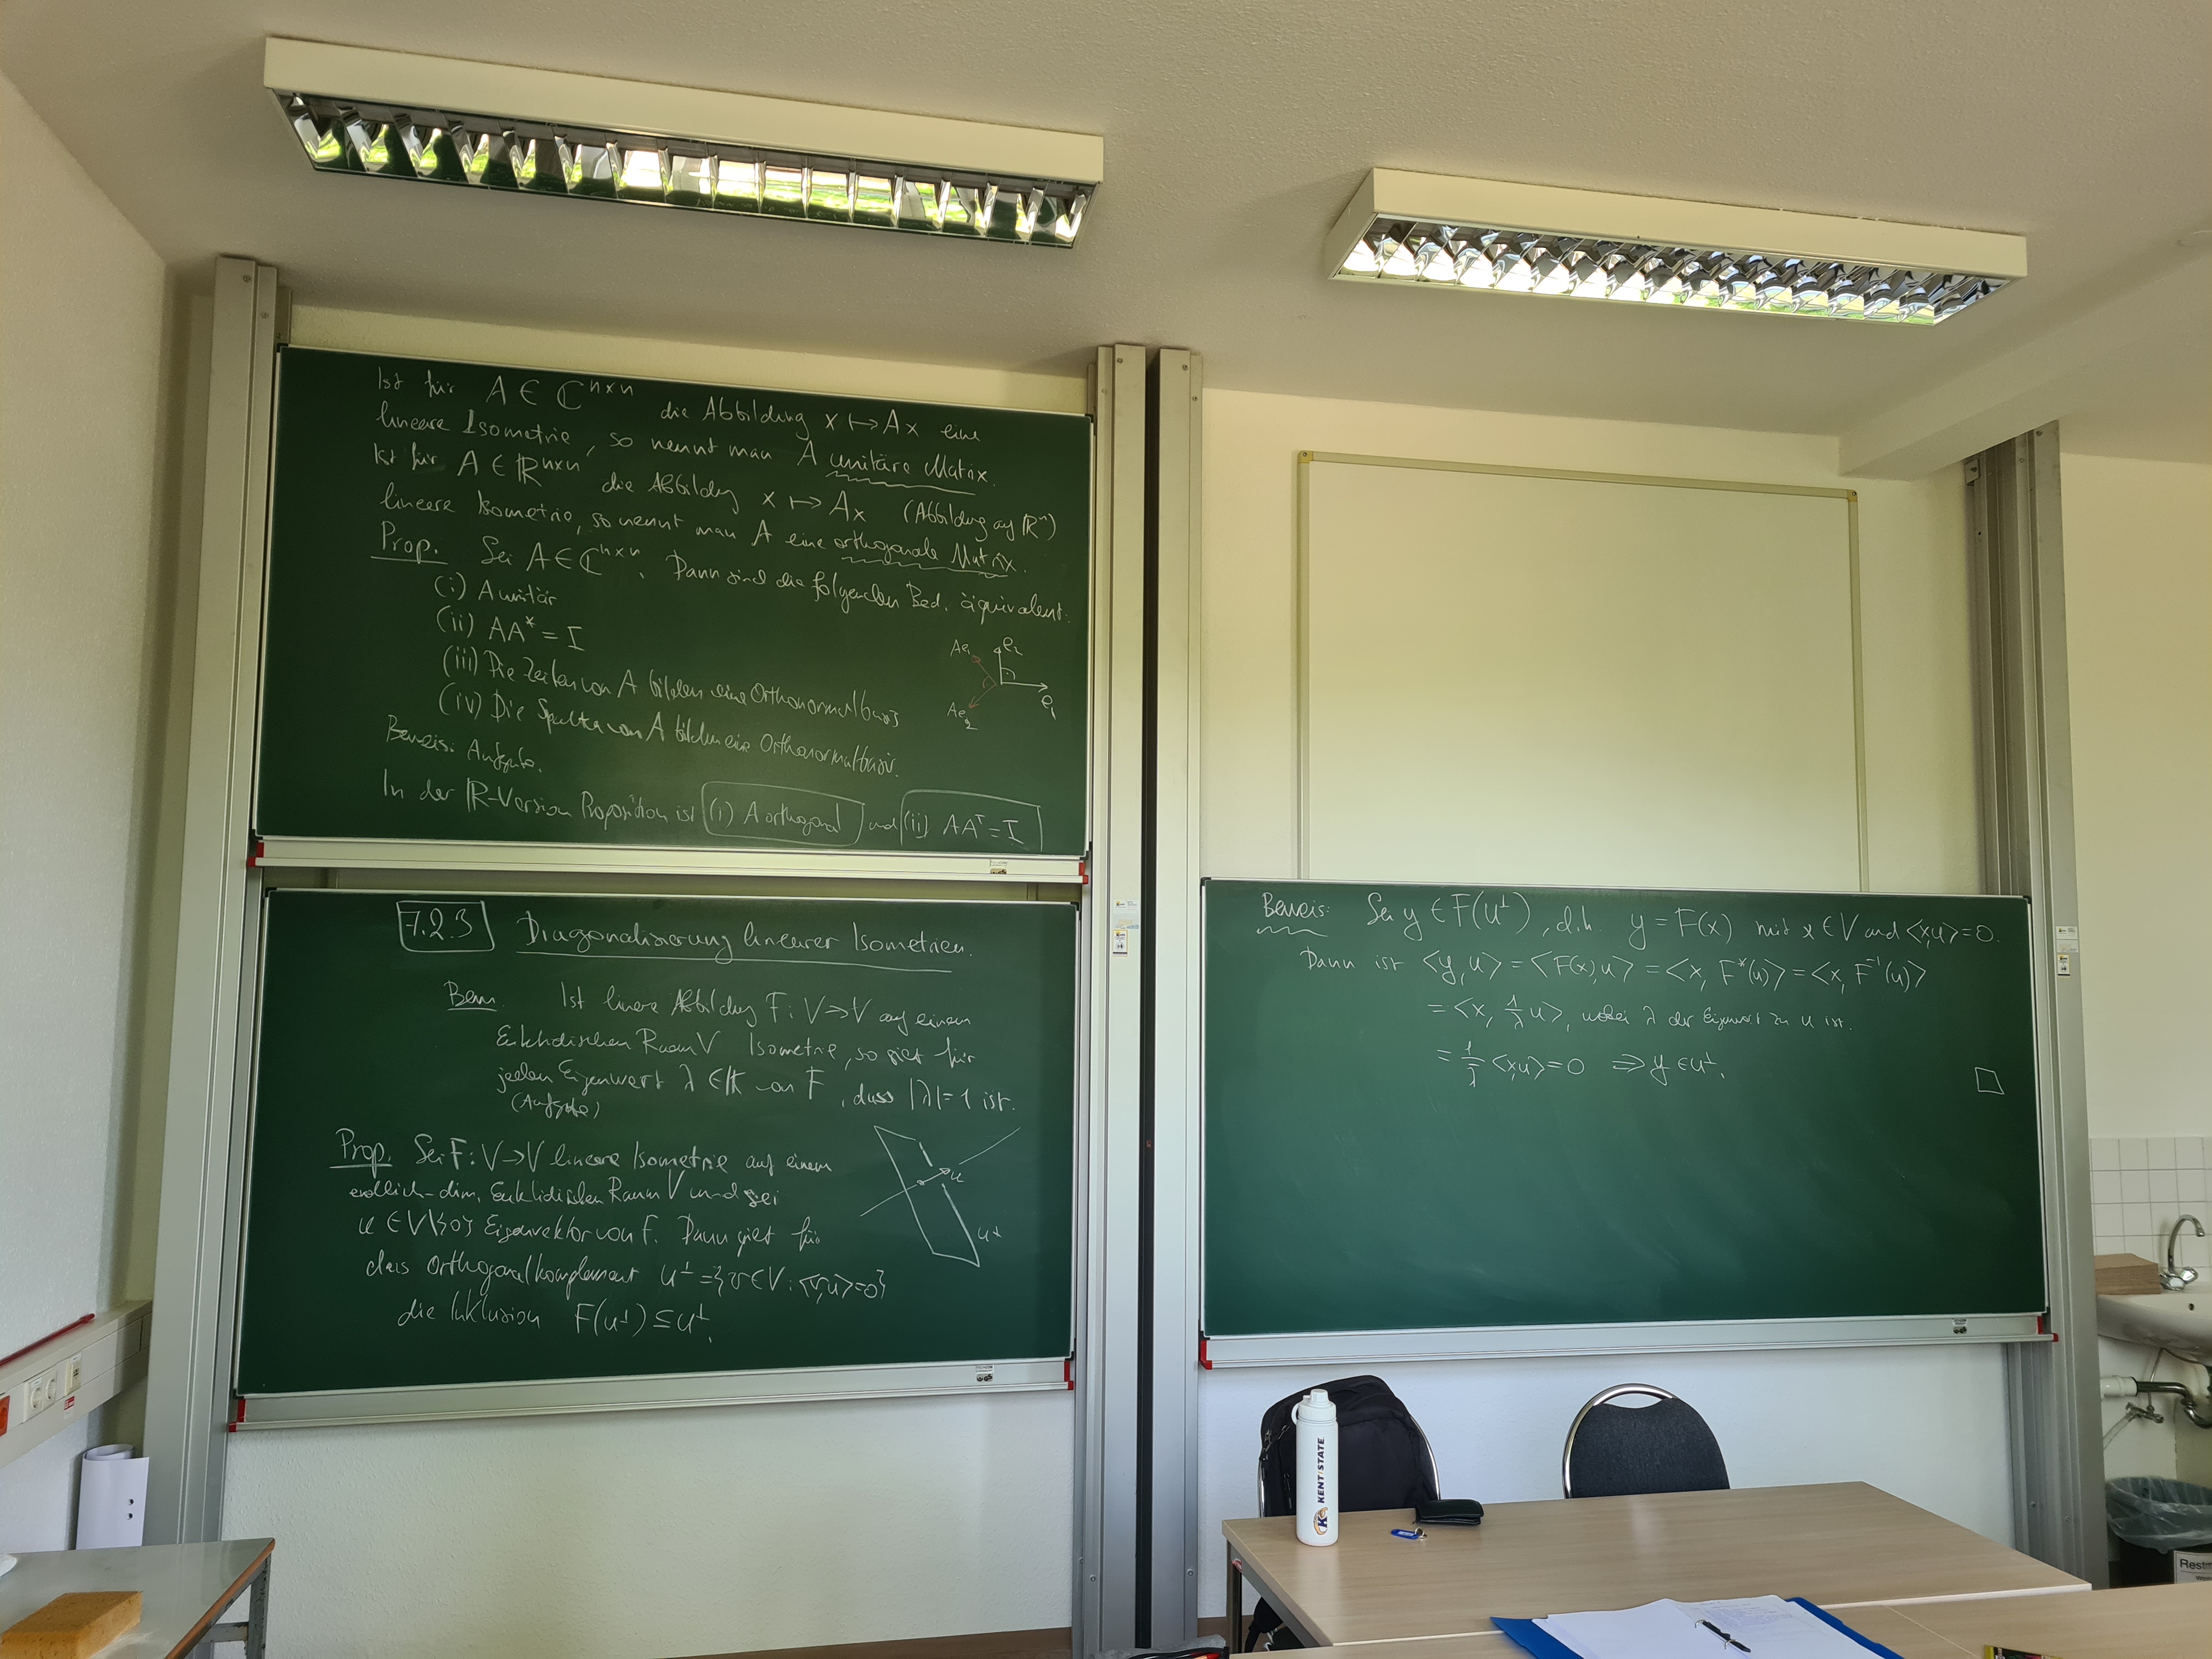 Ist für A ∈ ℂ^{n×n} die Abbildung x ↦ Ax eine
lineare Isometrie, so nennt man A unitäre Matrix.
Ist für A ∈ ℝ^{n×n} die Abbildung x ↦ Ax (Abbildung auf ℝ^n)
lineare Isometrie, so nennt man A eine orthogonale Matrix.
Prop. Sei A ∈ ℂ^{n×n}. Dann sind die folgenden Bed. äquivalent:
(i) A unitär
(ii) AA* = I
(iii) Die Zeilen von A bilden eine Orthonormalbasis
(iv) Die Spalten von A bilden eine Orthonormalbasis.
Ae₁ e₂
Ae₂ e₁
Beweis: Aufgabe.
In der ℝ-Version Proposition ist (i) A orthogonal und (ii) AA^T = I
7.2.3 Diagonalisierung linearer Isometrien.
Bem. Ist lineare Abbildung F: V → V auf einem
Euklidischen Raum V Isometrie, so gilt für
jeden Eigenwert λ ∈ 𝕂 von F, dass |λ| = 1 ist.
(Aufgabe)
Prop. Sei F: V → V lineare Isometrie auf einem
endlich-dim. Euklidischen Raum V und sei
u ∈ V\{0} Eigenvektor von F. Dann gilt für
das Orthogonalkomplement u^⊥ = {v ∈ V : <v,u> = 0}
die Inklusion F(u^⊥) ⊆ u^⊥.
u
u^⊥
Beweis: Sei y ∈ F(u^⊥), d.h. y = F(x) mit x ∈ V und <x,u> = 0.
Dann ist <y,u> = <F(x),u> = <x, F*(u)> = <x, F^{-1}(u)>
= <x, 1/λ u>, wobei λ der Eigenwert zu u ist.
= 1/λ̄ <x,u> = 0 ⇒ y ∈ u^⊥.
□
KENT STATE